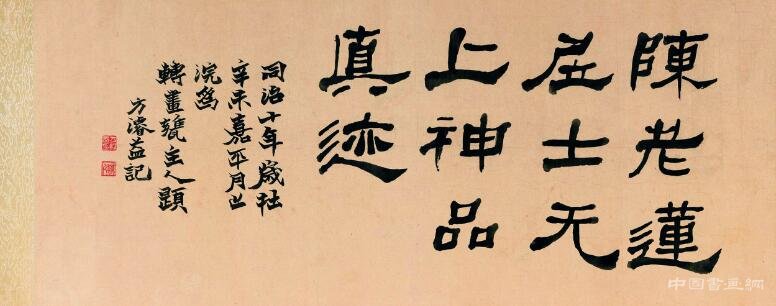 陳老蓮
居士无
上神品
真迹
同治十年歲在
辛未嘉平月上
浣為
轉畫甕主人題
方濬益記
中国書画網